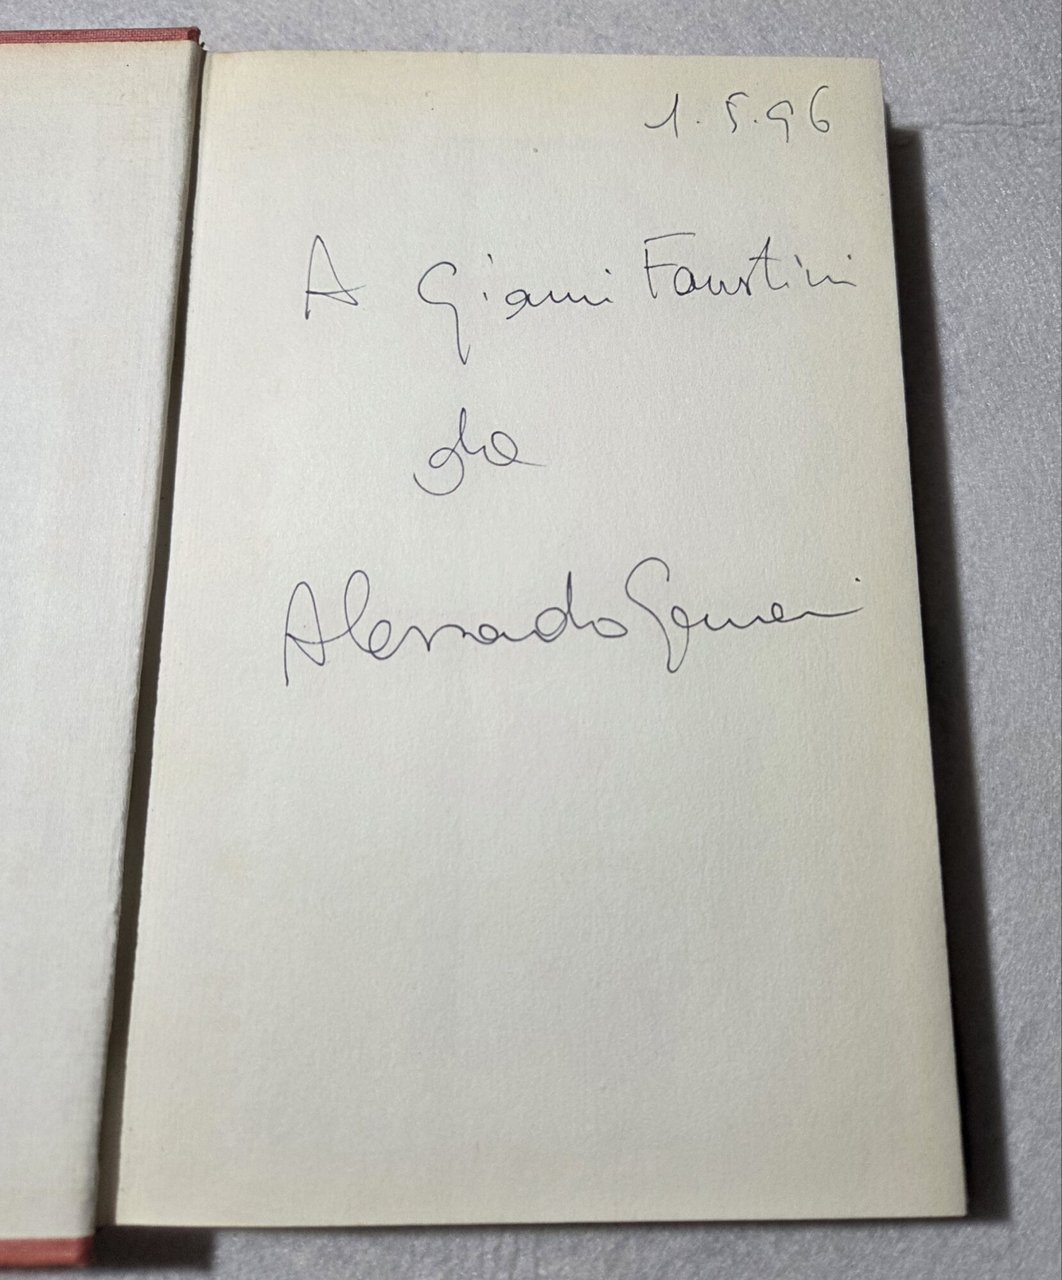 1.5.96
A Gianni Faustini
da
Alessandro